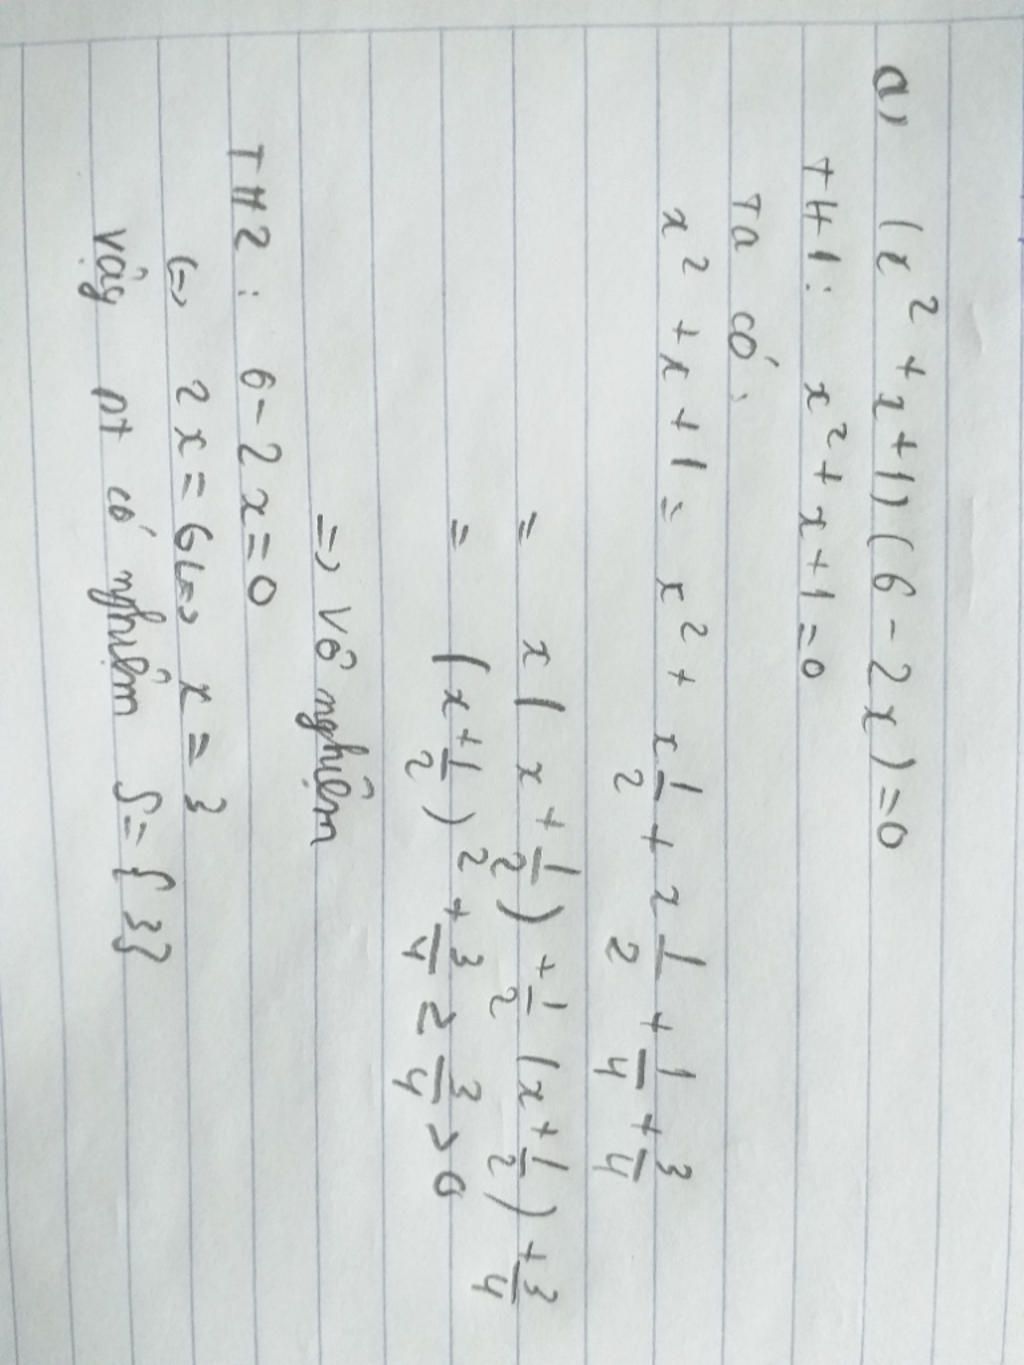 a) (x² + x + 1)(6 - 2x) = 0
TH1: x² + x + 1 = 0
Ta có:
x² + x + 1 = x² + x 1/2 + x 1/2 + 1/4 + 3/4
= x(x + 1/2) + 1/2 (x + 1/2) + 3/4
= (x + 1/2)² + 3/4 ≥ 3/4 > 0
=> Vô nghiệm
TH2: 6 - 2x = 0
<=> 2x = 6 <=> x = 3
Vậy pt có nghiệm S = {3}